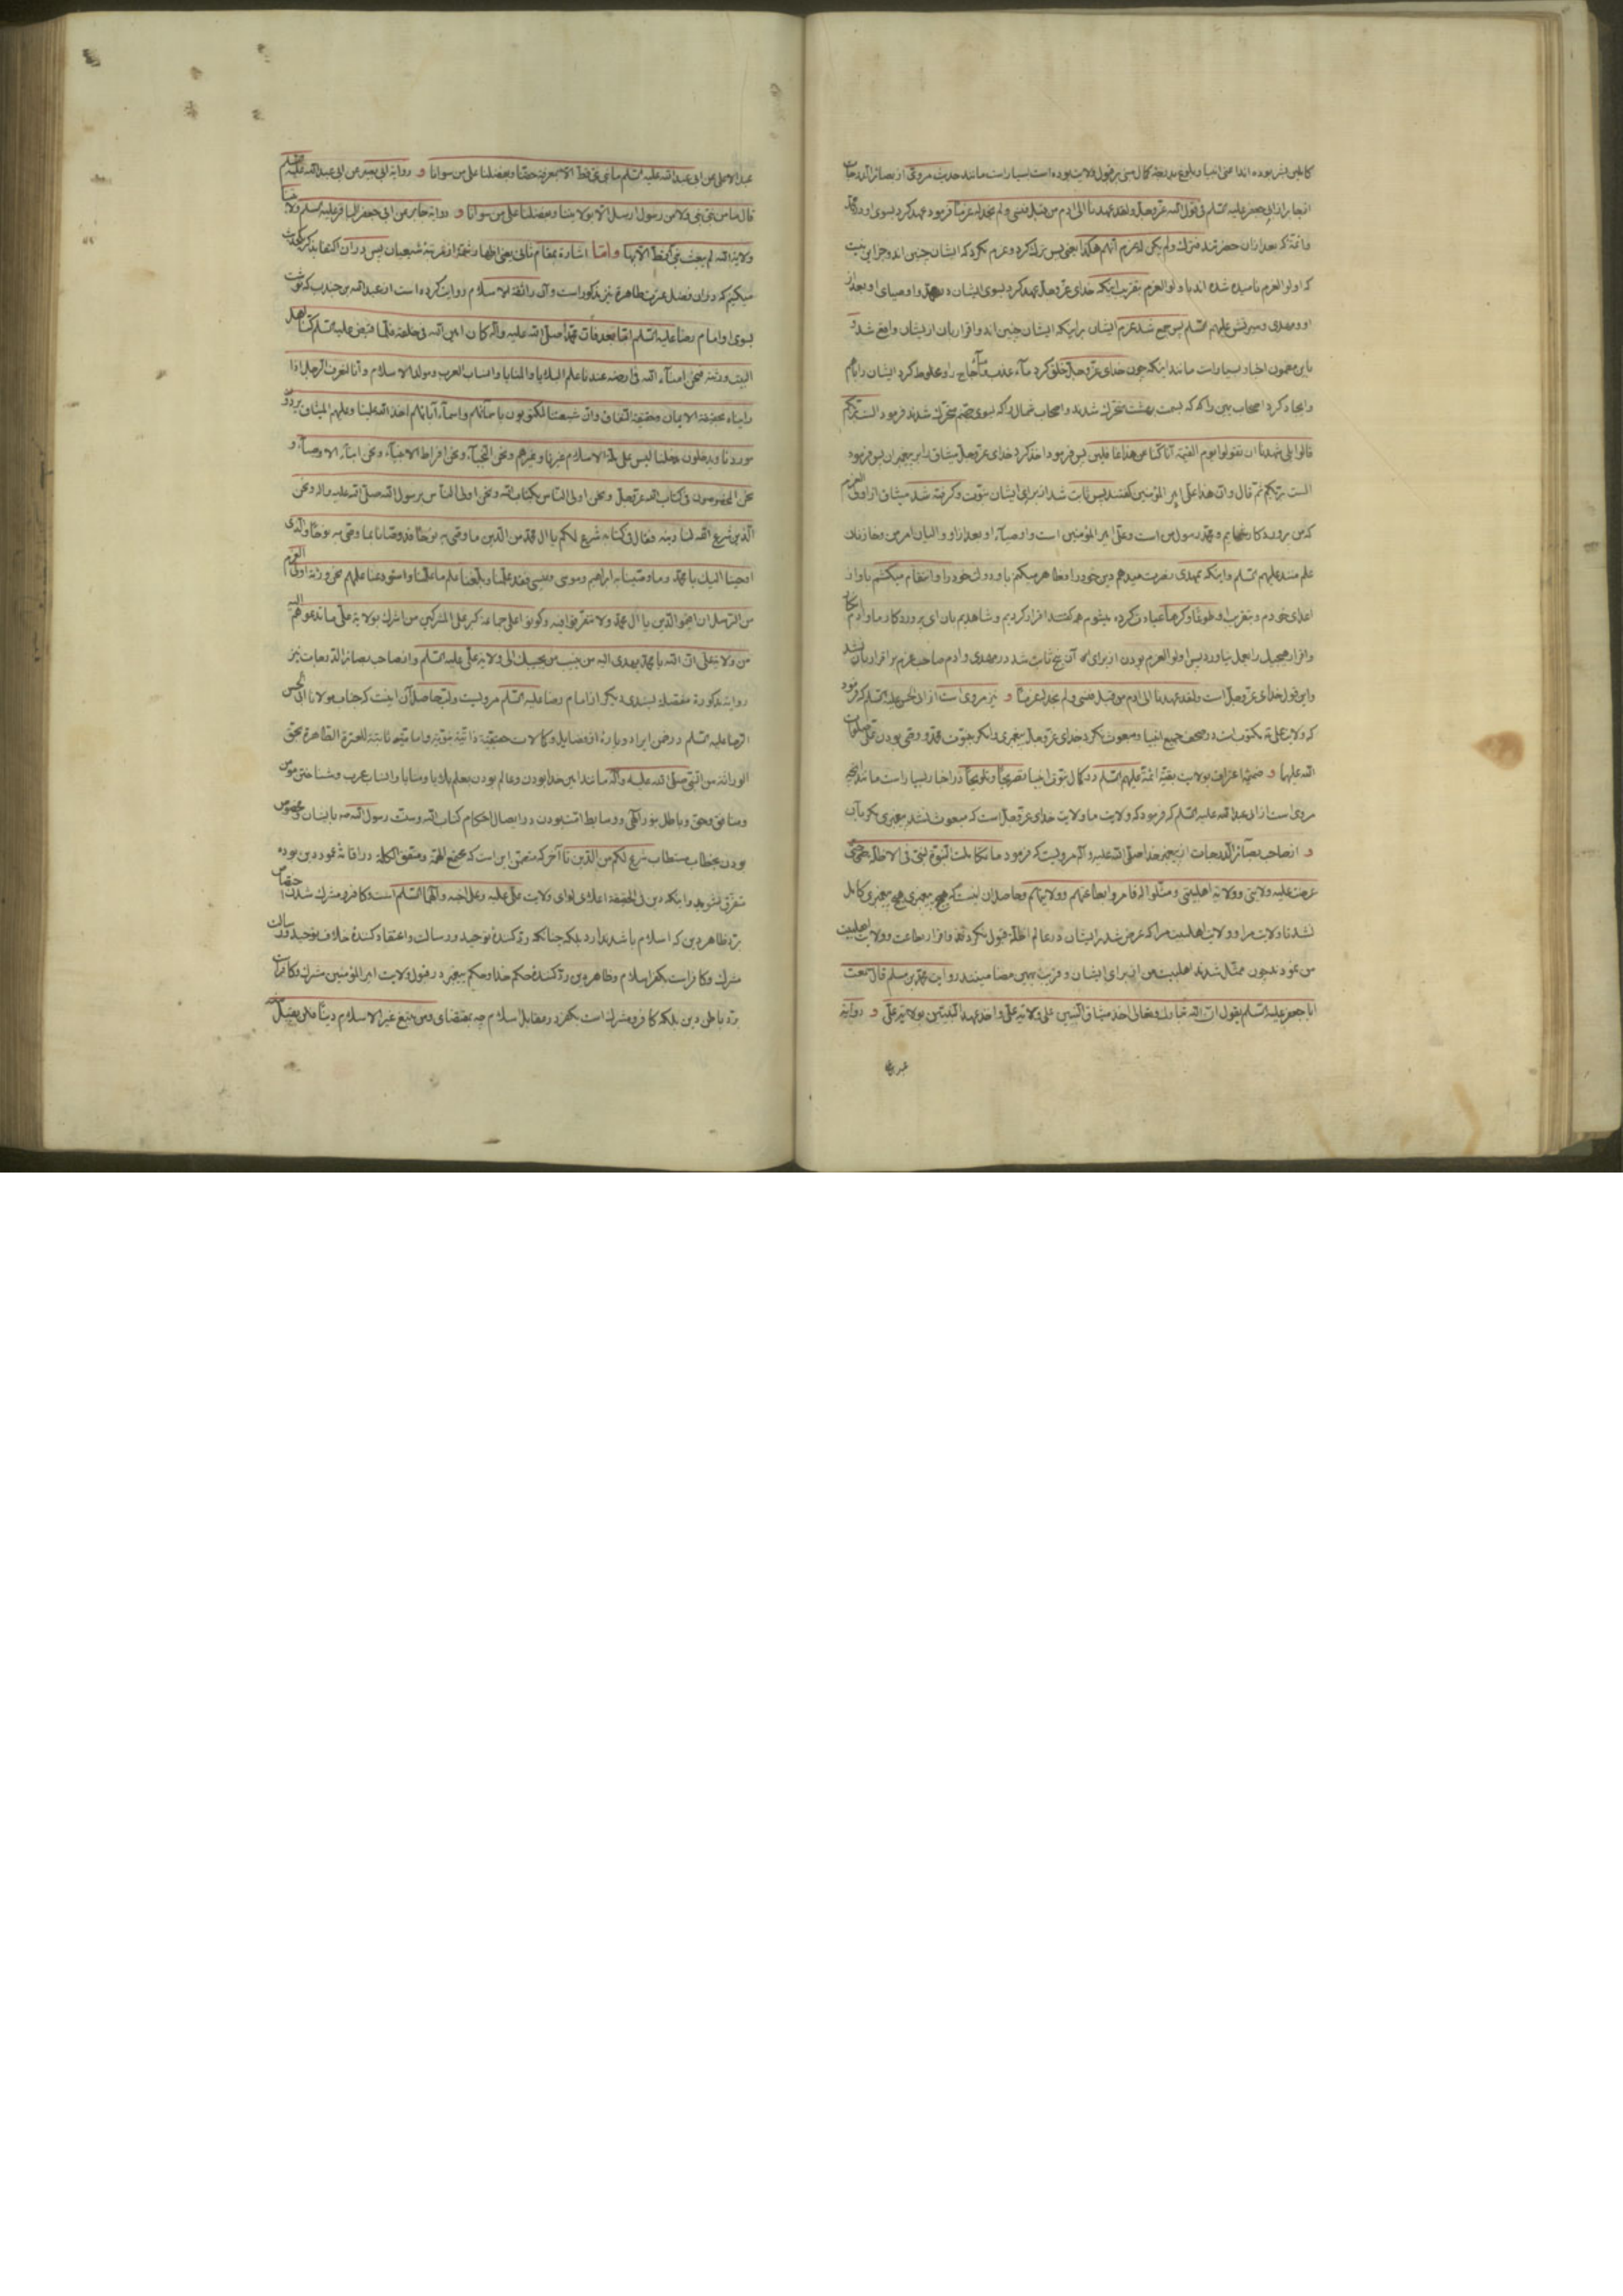 کاملین بشر بوده‌اند اعنی انبیا و بلوغ بدرجهٔ کمال مبنی بر قبول ولایت بوده است بسیار است مانند حدیث مروی از بصائر الدرجات
از جابر از ابی جعفر علیه السلم فی قول الله عز وجل ولقد عهدنا الی ادم من قبل فنسی ولم نجد له عزماً فرمود عهد کرد بسوی او در محمد
وائمّه که بعد از آن حضرتند فترك ولم یکن له عزم انهم هکذا یعنی پس ترك کرد و عزم نکرد که ایشان چنین‌اند و جز این نیست
که اولو العزم نامیده شده‌اند باولو العزم بتقریب اینکه خدای عز وجل عهد کرد بسوی ایشان در محمد و اوصیای او بعد از
او و مهدی و سیرتش علیهم السلم پس جمع شد عزم ایشان براینکه ایشان چنین‌اند و اقرار بان ازیشان واقع شد و
باین مضمون اخبار بسیار است مانند اینکه چون خدای عز وجل خلق کرد ماء عذب و ماء اُجاج را و مخلوط کرد ایشان را باهم
و ایجاد کرد اصحاب یمین را که که بسمت بهشت متحرك شدند و اصحاب شمال را که بسوی جهنم متحرك شدند فرمود الست بربکم
قالوا بلی شهدنا ان تقولوا یوم القیمة انا کنا عن هذا غافلین پس فرمود اخذ کرد خدای عز وجل میثاق را بر پیغمبران پس فرمود
الست بربکم ثم قال وان هذا علی امیر المؤمنین گفتند پس ثابت شد از برای ایشان نبوت و گرفته شد میثاق از اولی العزم
که من پروردگار شمایم و محمد رسول من است وعلی امیر المؤمنین است و اوصیآء او بعد از او والیان امر من و خازنان
علم منند علیهم السلم و اینکه بمهدی نصرت میدهم دین خودرا و ظاهر میکنم باو دولت خودرا و انتقام میکشم باو از
اعدای خودم و بتقریب او طوعاً و کرهاً عبادت کرده میشوم هم گفتند اقرار کردیم و شاهدیم بان ای پروردگار ما و ادم انکار
و اقرار هیچیك را بعمل نیاورد پس اولو العزم بودن از برای آن پنج ثابت شد در مهدی و ادم صاحب عزم بر اقرار بان نشد
و این قول خدای عز وجل است ولقد عهدنا الی ادم من قبل فنسی ولم نجد له عزماً و نیز مروی است از ابی الحسن علیه السلم که فرمود
که ولایت علی مکتوب است در صحف جمیع انبیا و مبعوث نکرد خدای عز وجل پیغمبری را مگر بنبوت محمد و وصی بودن علی صلوات
الله علیهما و ضمیمهٔ اعتراف بولایت بقیّه ائمّة علیهم السلم در کمال نبوت انبیا تصریحاً و تلویحاً در اخبار بسیار است مانند آنچه
مروی است از ابی عبد الله علیه السلم که فرمود که ولایت ما ولایت خدای عز وجل است که مبعوث نشد پیغمبری مگر بآن
و از صاحب بصائر الدرجات از پیغمبر خدا صلی الله علیه وآله مرویست که فرمود ما تکاملت النبوة لنبی فی الاظله حتی
عرضت علیه ولایتی وولایة اهلبیتی ومثلوا له فاقروا بطاعتهم وولایتهم و حاصل آن اینست که هیچ پیغمبری هیچ پیغمبری کامل
نشد تا ولایت مرا و ولایت اهلبیت مرا که عرض شد بر ایشان در عالم اظلّه قبول نکردند و اقرار بطاعت و ولایت اهلبیت
من نمودند چون ممثّل شدند اهلبیت من از برای ایشان و قریب بهمین مضامینند روایت محمد بن مسلم قال سمعت
ابا جعفر علیه السلم یقول ان الله تبارك وتعالی اخذ میثاق النبیین علی ولایة علی واخذ عهد النبیین بولایة علی و روایة
عبد الاعلی عن ابی عبد الله علیه السلم ما نبی نبی قط الا بمعرفة حقنا وبفضلنا علی من سوانا و روایة ابی بصیر عن ابی عبد الله علیه السلم
قال ما من نبی نبی ولا من رسول ارسل الا بولایتنا وبفضلنا علی من سوانا و روایة جابر عن ابی جعفر الباقر علیه السلم ولایتنا
ولایة الله لم یبعث نبی قط الا بها و امّا اشارة بمقام ثانی یعنی اظهار شمّهٔ از مرتبهٔ شیعیان پس در آن اکتفا بذکر یك حدیث
میکنیم که در آن فضل عترت طاهرة نیز مذکور است و آن را ثقة الاسلام روایت کرده است از عبد الله بن جندب که نوشت
بسوی او امام رضا علیه السلم امّا بعد فان محمّداً صلی الله علیه وآله کان امین الله فی خلقه فلما قبض علیه السلم کنّا اهل
البیت ورثته فنحن امنآء الله فی ارضه عندنا علم البلایا والمنایا وانساب العرب ومولد الاسلام وانا لنعرف الرجل اذا
رایناه بحقیقة الایمان وحقیقة النفاق وان شیعتنا لمکتوبون باسمآئهم واسمآء آبائهم اخذ الله علینا وعلیهم المیثاق یردون
موردنا ویدخلون مدخلنا لیس علی ملة الاسلام غیرنا وغیرهم ونحن النجبآء ونحن افراط الانبیآء ونحن ابنآء الاوصیآء و
نحن المخصوصون فی کتاب الله عز وجل ونحن اولی الناس بکتاب الله ونحن اولی الناس برسول الله صلی الله علیه وآله ونحن
الذین شرع الله لنا دینه فقال فی کتابه شرع لکم یا آل محمد من الدین ما وصی به نوحاً قد وصانا بما وصی به نوحاً والذی
اوحینا الیك یا محمد وما وصینا به ابراهیم وموسی وعیسی فقد علمنا وبلغنا علم ما علمنا واستودعنا علمهم نحن ورثة اولی العزم
من الرسل ان اقیموا الدین یا آل محمد ولا تتفرقوا فیه وکونوا علی جماعة کبر علی المشرکین من اشرك بولایة علی ما تدعوهم الیه
من ولایة علی ان الله یا محمد یهدی الیه من ینیب من یجیبك الی ولایة علی علیه السلم و از صاحب بصائر الدرجات نیز
روایت مذکورة مفصلهٔ بسندی دیگر از امام رضا علیه السلم مرویست و حاصل آن اینست که جناب مولانا ابی الحسن
الرضا علیه السلم در ضمن ایراد پارهٔ از فضایل و کمالات حقیقیّة ذاتیّة نبویّة وامامیّة ثابتة للعترة الطاهرة بحق
الوراثة من النبی صلی الله علیه وآله مانند امین خدا بودن و عالم بودن بعلم بلایا و منایا و انساب عرب و شناختن مؤمن
و منافق و حق و باطل بنور الهی و وسایط امّت بودن در ایصال احکام کتاب الله و سنّت رسول الله صه بایشان و مخصوص
بودن بخطاب مستطاب شرع لکم من الدین تا آخر که متضمن این است که مجتمع الهمّة و متفق الکلمة در اقامهٔ عمود دین بوده
متفرق نشوید و اینکه دین فی الحقیقة اعلای لوای ولایت علی علیه وعلی اخیه وآلهما السلم است و کافر و مشرك شدن اختصاص
بردّ ظاهر دین که اسلام باشد ندارد بلکه چنانکه ردّ کنندهٔ توحید و رسالت و اعتقاد کنندهٔ خلاف توحید و رسالت
مشرك و کافر است بکفر اسلام و ظاهر دین ردّ کنندهٔ حکم خدا و حکم پیغمبر در قبول ولایت امیر المؤمنین مشرك و کافر است
بردّ باطن دین بلکه کافر و مشرك است بکفر در مقابل اسلام چه بمقتضای ومن یبتغ غیر الاسلام دیناً فلن یقبل منه